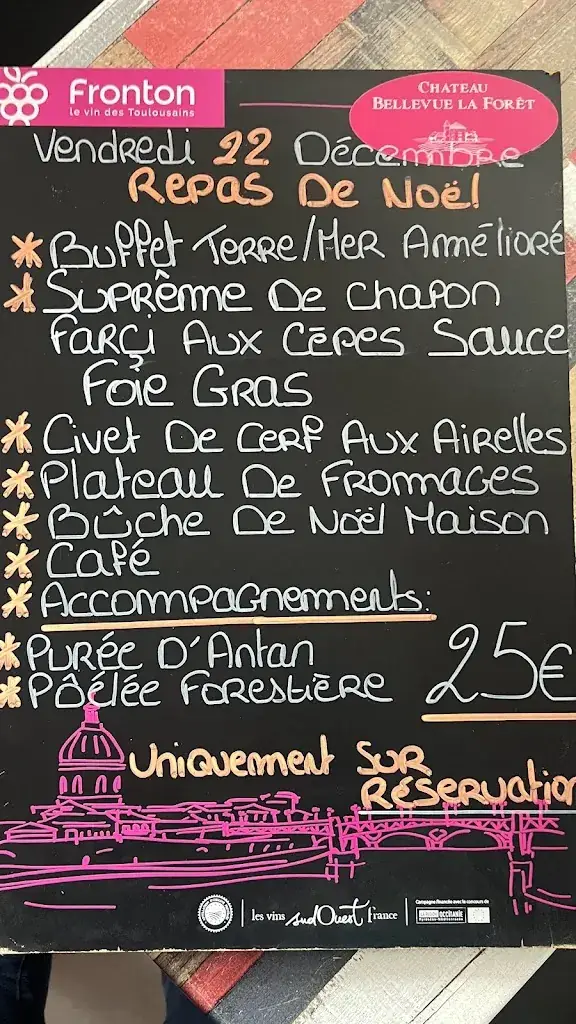 Fronton
le vin des Toulousains
CHATEAU
BELLEVUE LA FORÊT
Vendredi 22 Décembre
Repas De Noël
* Buffet Terre/Mer Amélioré
* Suprême De Chapon
Farçi Aux Cèpes Sauce
Foie Gras
* Civet De Cerf Aux Airelles
* Plateau De Fromages
* Bûche De Noël Maison
* Café
* Accompagnements:
* Purée D'Antan
* Pôêlée Forestière 25€
Uniquement Sur
Réservation
les vins Sud Ouest france
Campagne financée avec le concours de